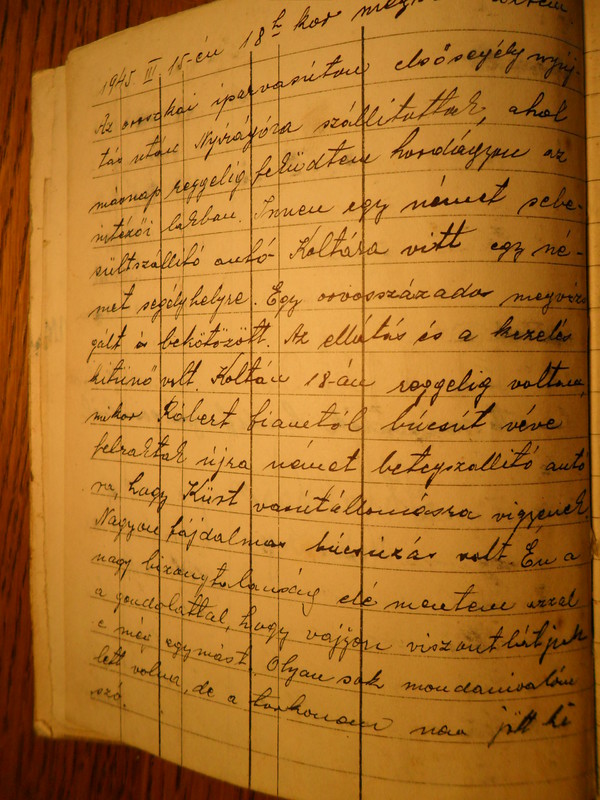 1945. III 15-én 18h kor
Az oroszkai iparvasúton elsősegély nyúj-
tás után Nyírágóra szállítottak, ahol
másnap reggelig feküdtem hordágyon az
intézői lakban. Innen egy német sebe-
sültszállító autó Koltára vitt egy né-
met segélyhelyre. Egy orvosszázados megvizs
gált és bekötözött. Az ellátás és a kezelés
kitünő volt. Koltán 18-án reggelig voltam,
mikor Róbert fiamtól búcsút véve
felraktak újra német betegszállító autó
ra, hogy Kürt vasútállomásra vigyenek.
Nagyon fájdalmas búcsúzás volt. Én a
nagy bizonytalanság elé mentem azzal
a gondolattal, hogy vajjon viszontlátjuk
e még egymást. Olyan sok mondanivalóm
lett volna, de a torkomon nem jött ki
szó.